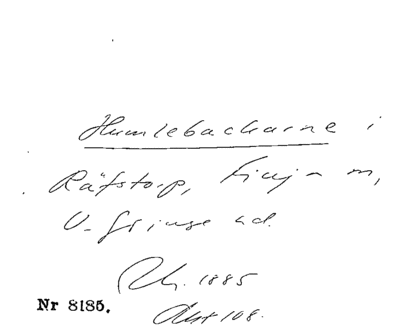 Humlebackarne i
Räfstorp, Finja m,
V. Göinge hd.
Rh. 1885
Akt 108.
Nr 8185.